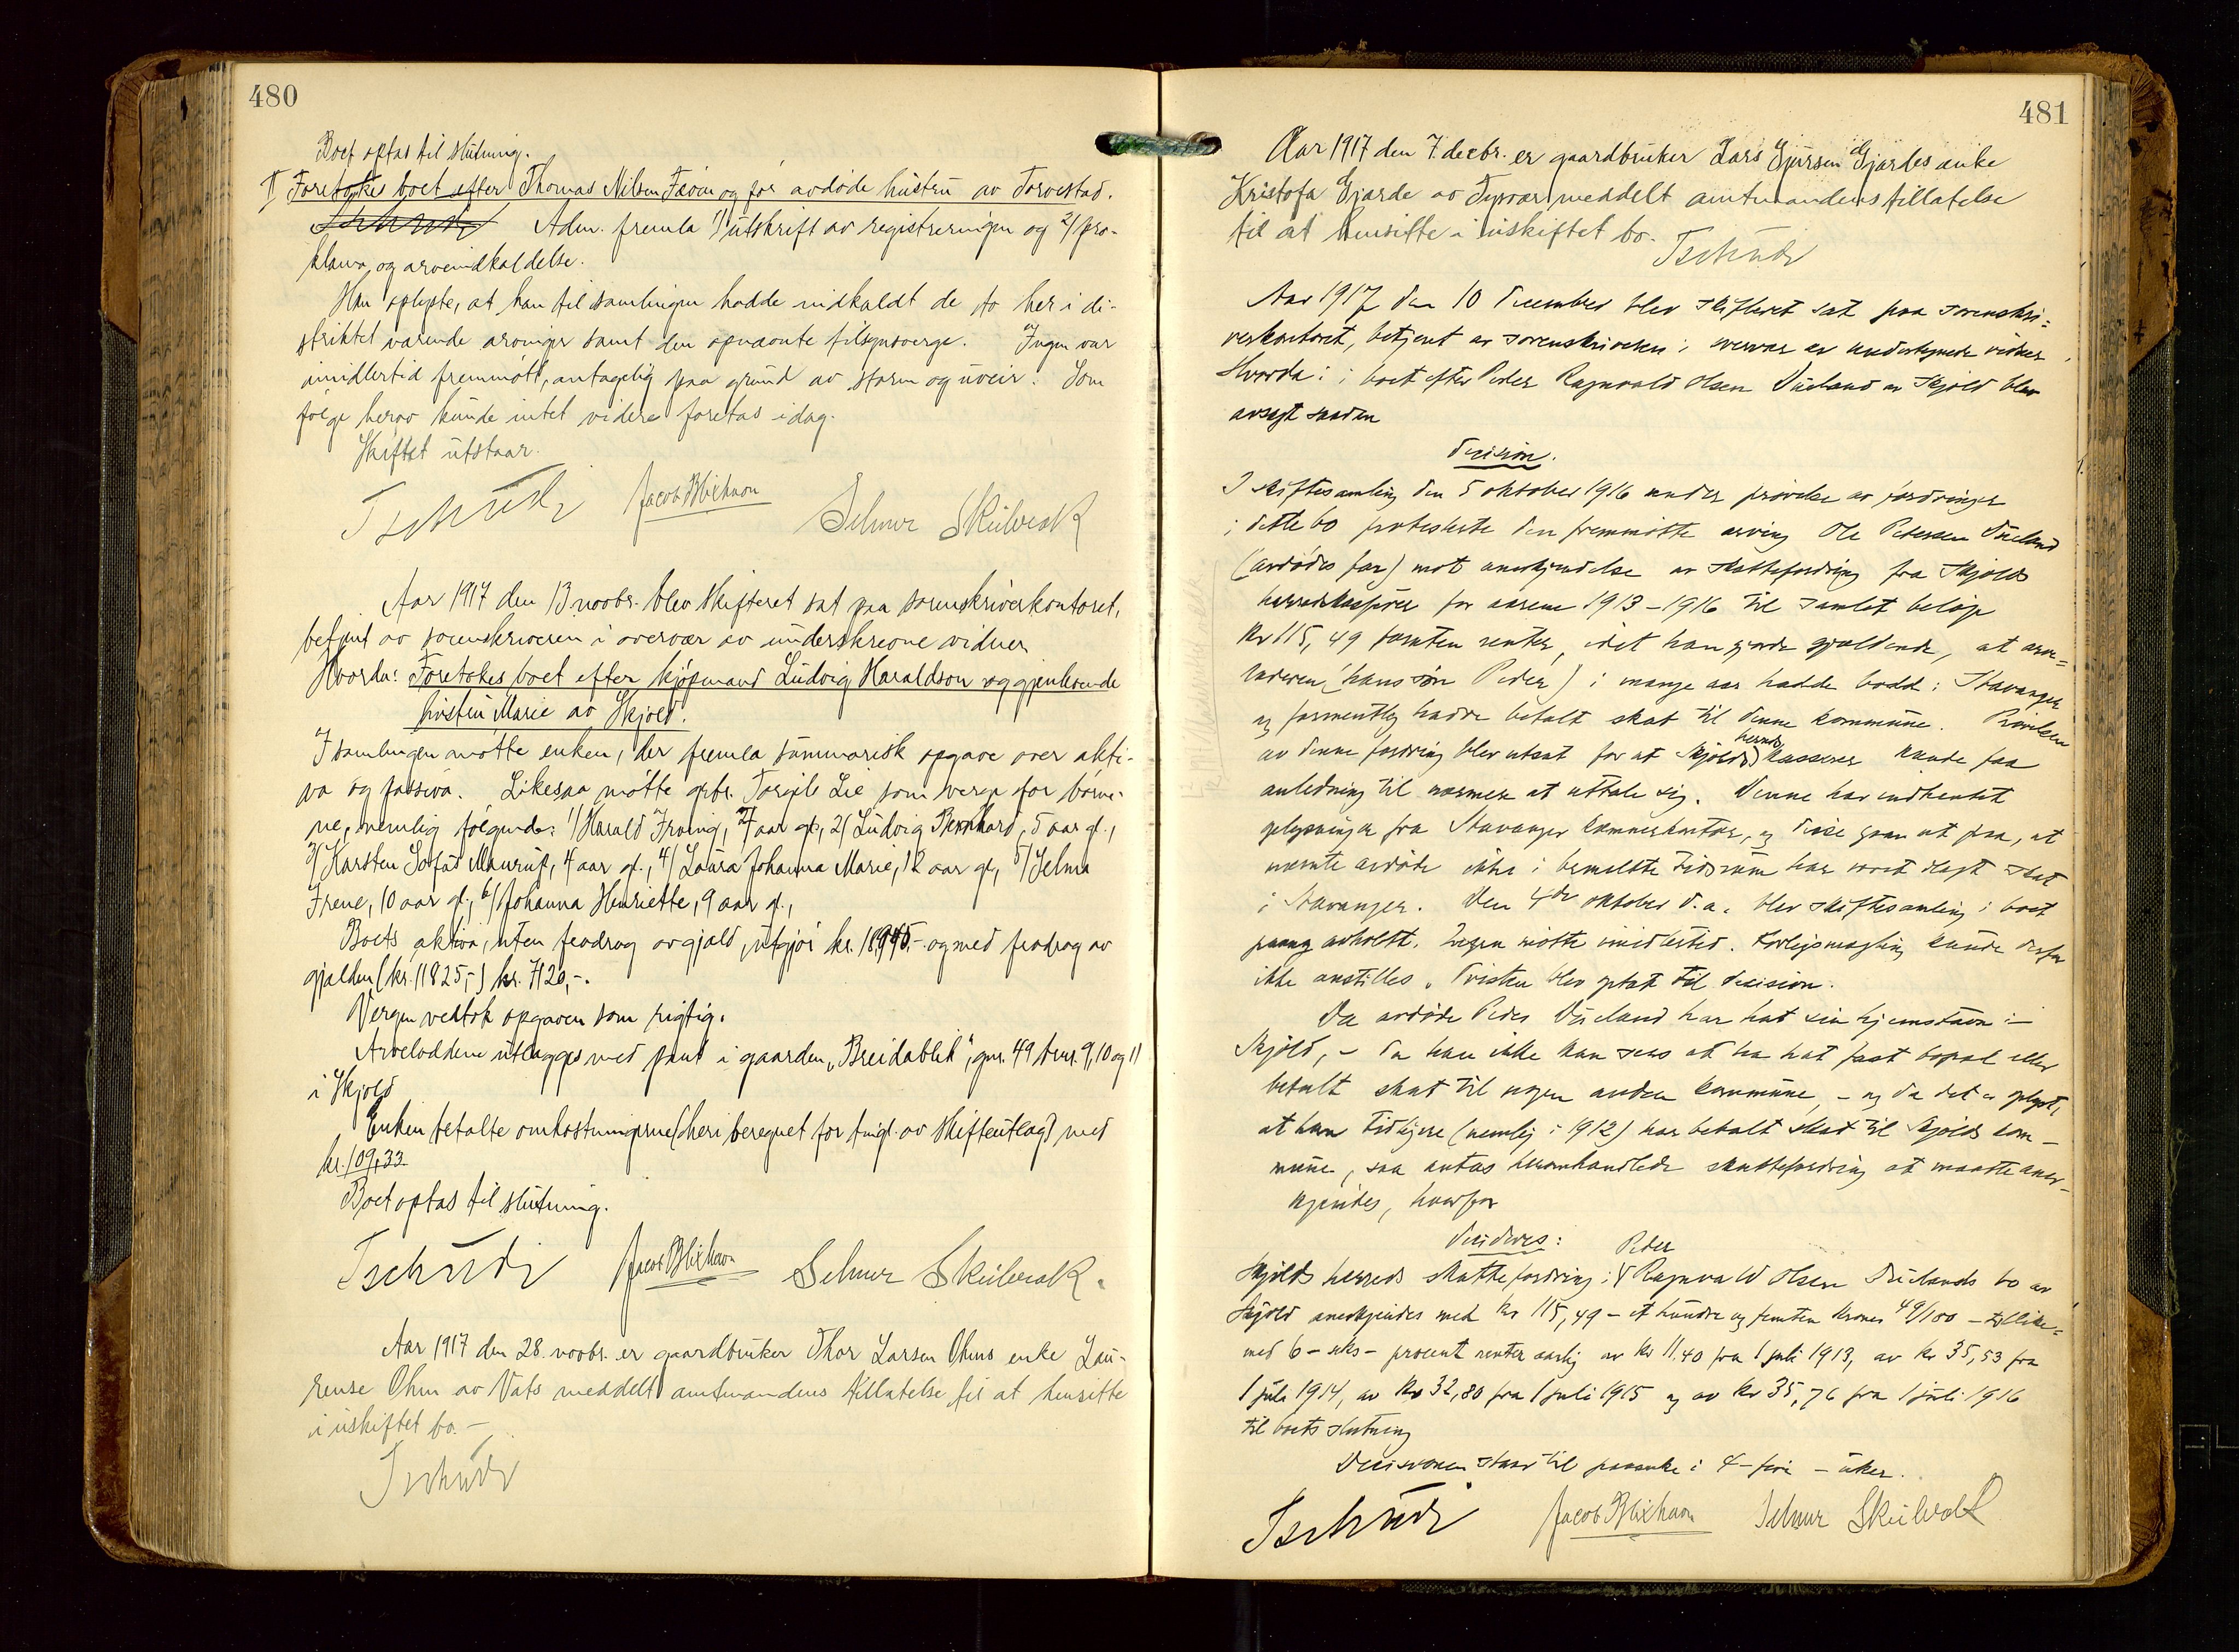 480
Boet optas til slutning.
II Foretokes boet efter Thomas Nilsen og før avdøde hustru av Torvestad.
Adm. fremla 1) utskrift av registreringen og 2) pro-
klama og arveindkaldelse.
Han oplyste, at han til samlingen hadde indkaldt de to her i di-
striktet værende arvinger samt den opnævnte tilsynsverge. Ingen var
imidlertid fremmøtt, antagelig paa grund av storm og uveir. Som
følge herav kunde intet videre foretas idag.
Skiftet utstaar.
Tschudi Jacob Blixhavn Selmer Skulvralk
Aar 1917 den 13 novbr. blev skifteret sat paa sorenskriverkontoret,
betjent av sorenskriveren i overvær av underskrevne vidner
Hvorda: Foretokes boet efter kjøpmand Ludvig Haraldson og gjenlevende
hustru Marie av Skjold.
I samlingen møtte enken, der fremla summarisk opgave over akti-
va og passiva. Likesaa møtte gbr. Torgils Lie som verge for børne-
ne, nemlig følgende: 1) Harald Irving, 7 aar gl., 2) Ludvig Bernhard, 5 aar gl.,
3) Karsten Sofus Mauritz, 4 aar gl., 4) Laura Johanna Marie, 12 aar gl., 5) Selma
Irene, 10 aar gl., 6) Johanna Henriette, 9 aar gl.,
Boets aktiva, uten fradrag av gjæld, utgjør kr. 18945.- og med fradrag av
gjælden (kr. 11825,-) kr. 7120,-.
Vergen vedtok opgaven som rigtig.
Arveloddene utlægges med pant i gaarden „Breidablik", gnr. 49 brnr. 9, 10 og 11
i Skjold
Enken betalte omkostningerne (heri beregnet for tingl. av skifteutlæg) med
kr. 109,33.
Boet optas til slutning.
Tschudi Jacob Blixhavn Selmer Skulvralk.
Aar 1917 den 28. novbr. er gaardbruker Thor Larsen Ohms enke Lau-
rense Ohm av Vats meddelt amtmandens tillatelse til at hensitte
i uskiftet bo. -
Tschudi
481
Aar 1917 den 7. decbr. er gaardbruker Lars Gjersen Gjerdes enke
Kristofa Gjerde av Tysvær meddelt amtmandens tillatelse
til at hensitte i uskiftet bo.
Tschudi
Aar 1917 den 10 december blev skifteret sat paa sorenskri=
verkontoret, betjent av sorenskriveren i overvær av undertegnede vidner
Hvorda: i boet efter Peder Ragnvald Olsen Dueland av Skjold blev
avsagt saadan
decision.
I skiftesamling den 5 oktober 1916 under prøvelse av fordringer
i dette bo protesterte den fremmøtte arving Ole Petersen Dueland
(avdødes far) mot anerkjendelse av skattefordring fra Skjolds
herredskasserer for aarene 1913-1916 til samlet beløp
kr 115,49 foruten renter, idet han gjorde gjældende, at arve=
laderen (hans søn Peder) i mange aar hadde bodd i Stavanger
og formentlig hadde betalt skat til denne kommune. Prøvelsen
av denne fordring blev utsat for at Skjolds herredskasserer kunde faa
anledning til nærmere at uttale sig. Denne har indhentet
oplysninger fra Stavanger kemnerkontor, og disse gaar ut paa, at
nævnte avdøde ikke i bemeldte tidsrum har været ilagt skat
i Stavanger. Den 4de oktober d.a. blev skiftesamling i boet
paany avholdt. Ingen møtte imidlertid. Forligsmægling kunde derfor
ikke anstilles. Tvisten blev optat til decision.
Da avdøde Peder Dueland har hat sin hjemstavn i -
Skjold, - da han ikke kan sees at ha hat fast bopæl eller
betalt skat til nogen anden kommune, - og da det er oplyst,
at han tidligere (nemlig i 1912) har betalt skat til Skjolds kom-
mune, saa antas heromhandlede skattefordring at maatte aner-
kjendes, hvorfor
decideres:
Skjolds herreds skattefordring i Peder Ragnvald Olsen Duelands bo av
Skjold anerkjendes med kr 115,49 - et hundre og femten kroner 49/100 - tillike=
med 6 - seks - procent renter aarlig av kr 11.40 fra 1 juli 1913, av kr 35,53 fra
1 juli 1914, av kr 32,80 fra 1 juli 1915 og av kr 35,76 fra 1 juli 1916
til boets slutning
Decisionen staar til paaanke i 4 - fire - uker.
Tschudi Jacob Blixhavn Selmer Skulvralk